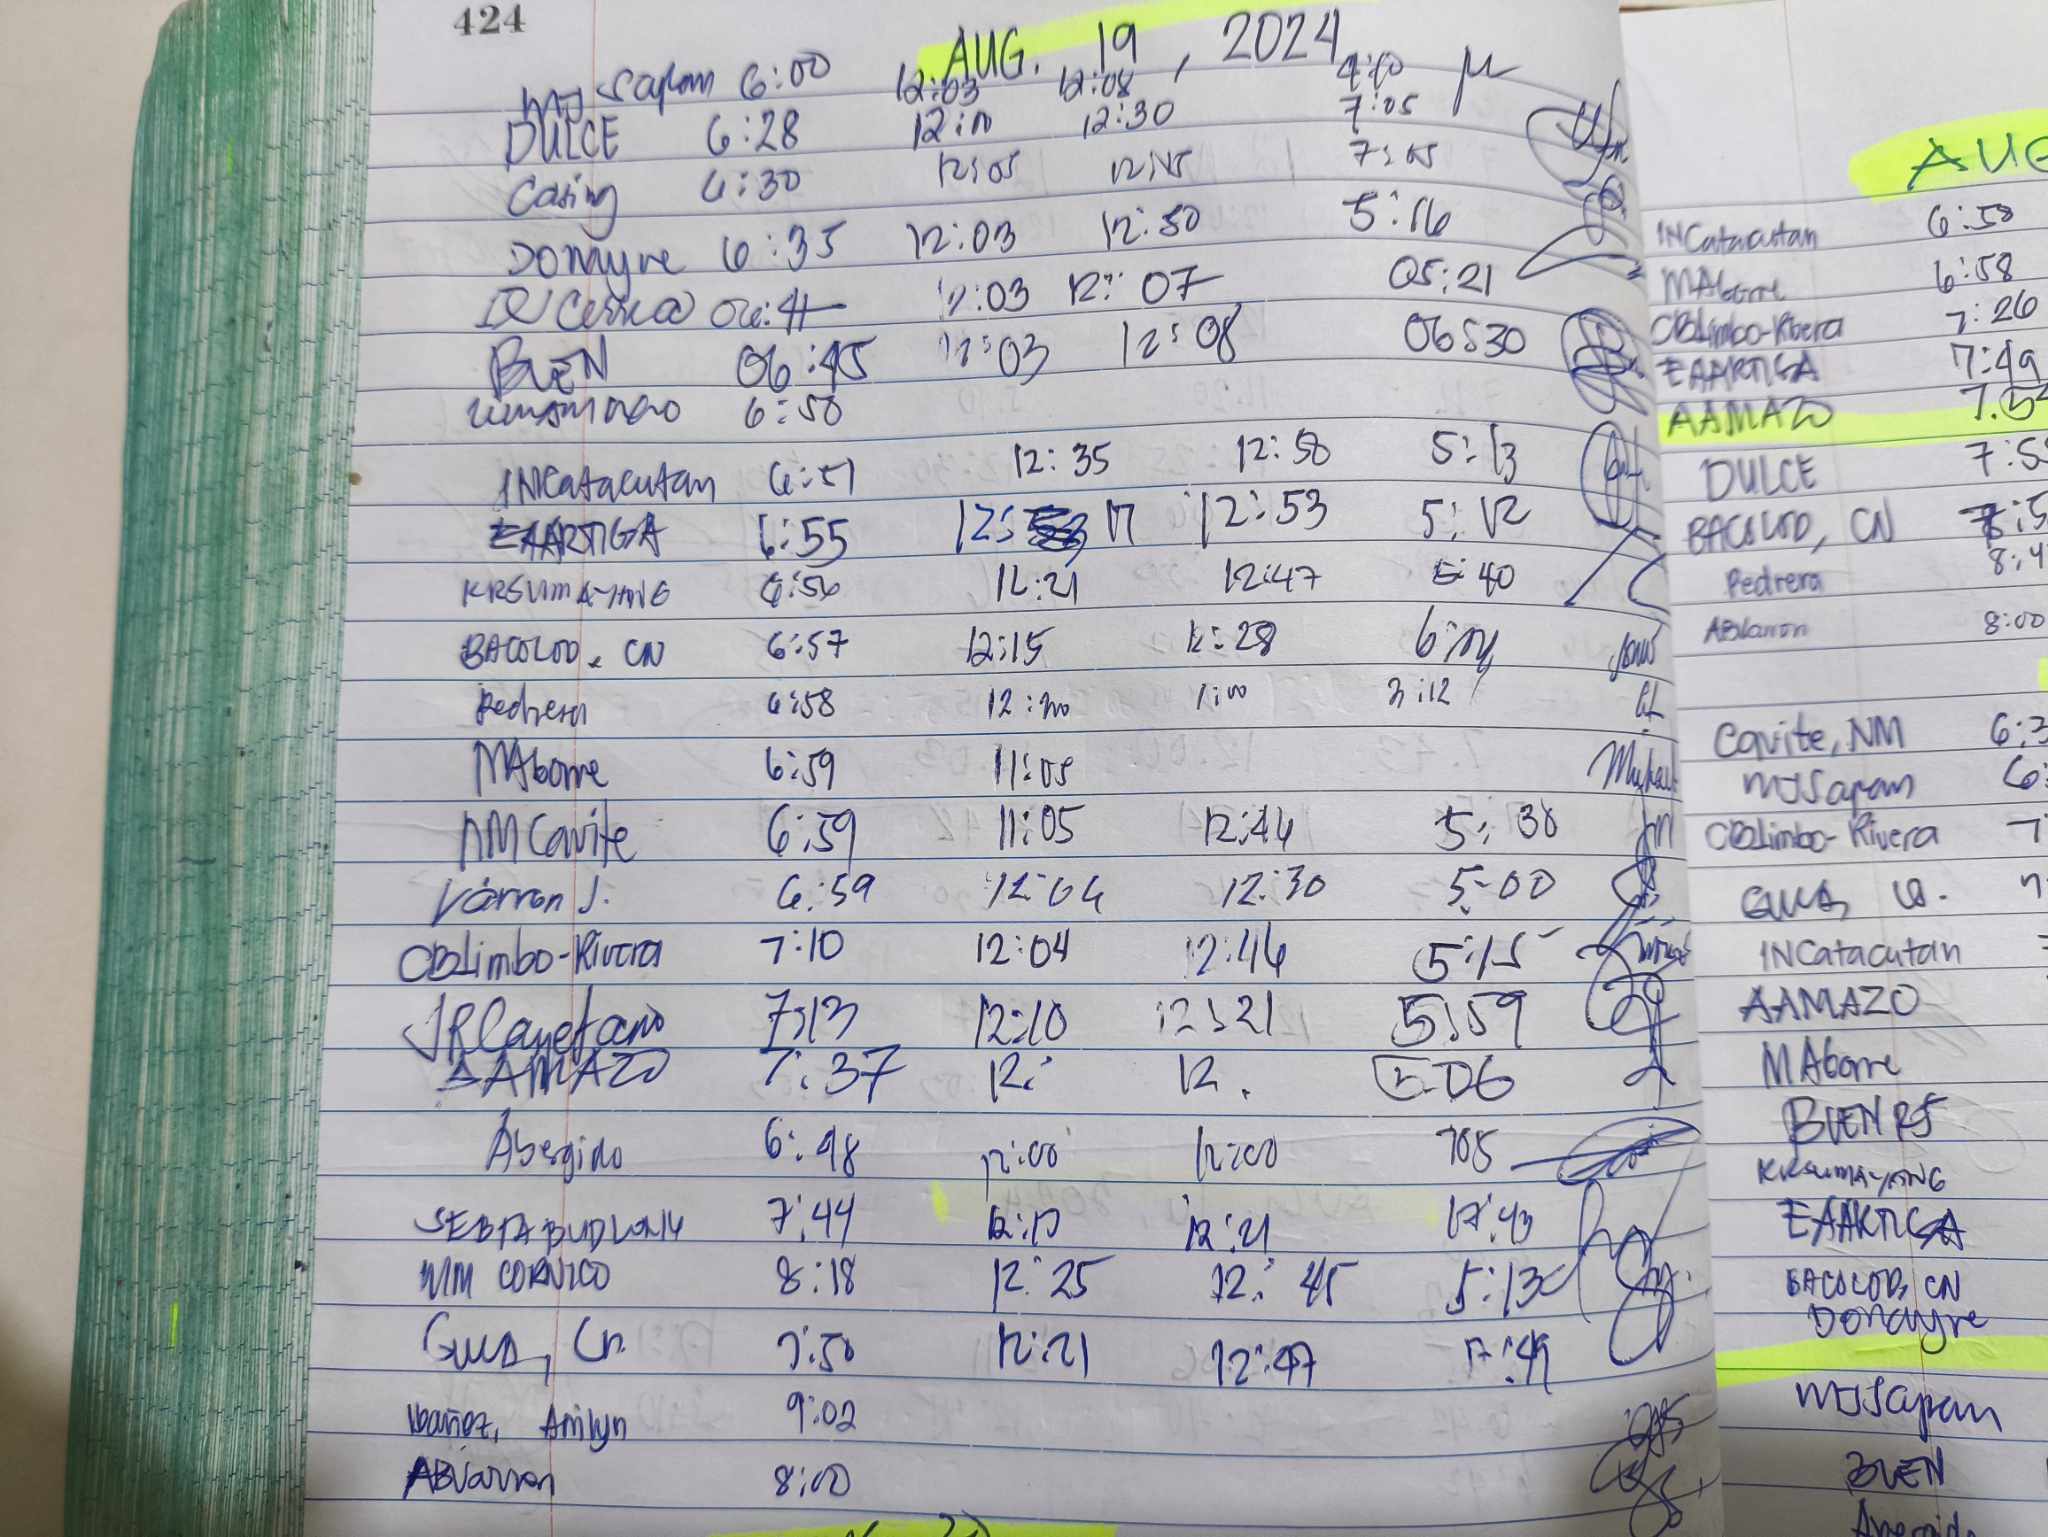 424
AUG. 19, 2024
MJ Sapan 6:00 12:03 12:08
DULCE 6:28 12:10 12:30 7:05
Casing 6:30 12:05 12:15 7:05
Donayre 6:35 12:03 12:50 5:16
12:03 12:07 05:21
BUEN 06:45 12:03 12:08 06:30
6:50
INCatacutan 6:51 12:35 12:58 5:13
EAARTIGA 6:55 12: 17 12:53 5:12
KRSUMAYANG 6:56 12:21 12:47 5:40
BACOLOD, CN 6:57 12:15 12:28
Pedrera 6:58 12:20 1:00 3:12
MAborre 6:59 11:05
NM Cavite 6:59 11:05 12:44 5:38
Varron J. 6:59 12:04 12:30 5:00
CBLimbo-Rivera 7:10 12:04 12:46 5:15
JRCayetano 7:13 12:10 12:21 5:59
AAMAZO 7:37 12: 12. 5:06
Abergido 6:48 12:00 12:00 705
7:44 12:17 12:21 17:43
MM CORNICO 8:18 12:25 12:45 5:13
7:50 12:21 12:47 17:49
Ibañez, Arilyn 9:02
ABVarron 8:00
AUG
INCatacutan 6:58
MAborre 6:58
CBLimbo-Rivera 7:26
EAARTIGA 7:49
AAMAZO 7.5
DULCE 7:5
BACOLOD, CN :5
Pedrera 8:4
8:00
Cavite, NM 6:3
MJSapan 6:
CBLimbo-Rivera 7
INCatacutan
AAMAZO
MAborre
BUEN RJ
KRSUMAYANG
EAARTIGA
BACOLOD, CN
Donayre
MJSapan
BUEN